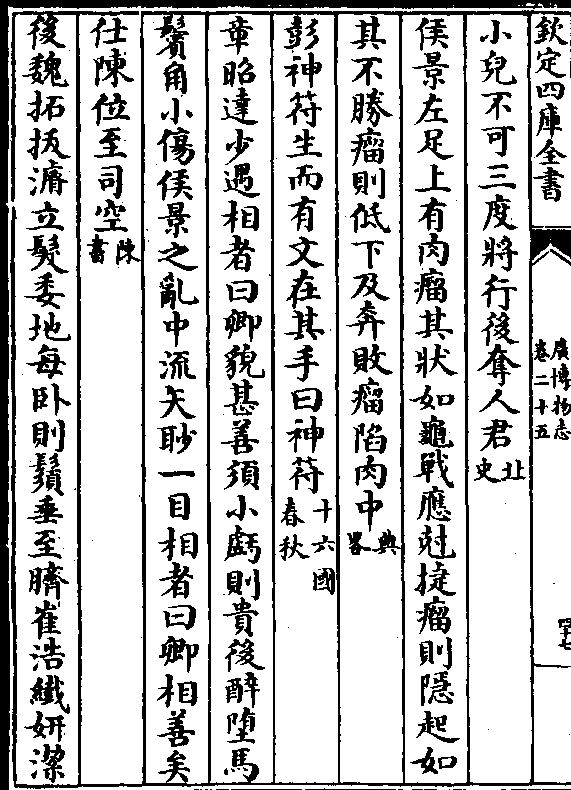 欽定四庫全書
廣博物志
卷二十五
四十七
小兒不可三度將行後奪人君北史
侯景左足上有肉瘤其狀如龜戰應尅捷瘤則隠起如
其不勝瘤則低下及奔敗瘤陷肉中典畧
彭神符生而有文在其手曰神符十六國春秋
章昭達少遇相者曰卿貌甚善須小虧則貴後醉墮馬
鬢角小傷侯景之亂中流矢眇一目相者曰卿相善矣
仕陳位至司空陳書
後魏拓拔濬立髮委地每卧則鬚垂至臍崔浩纎妍潔